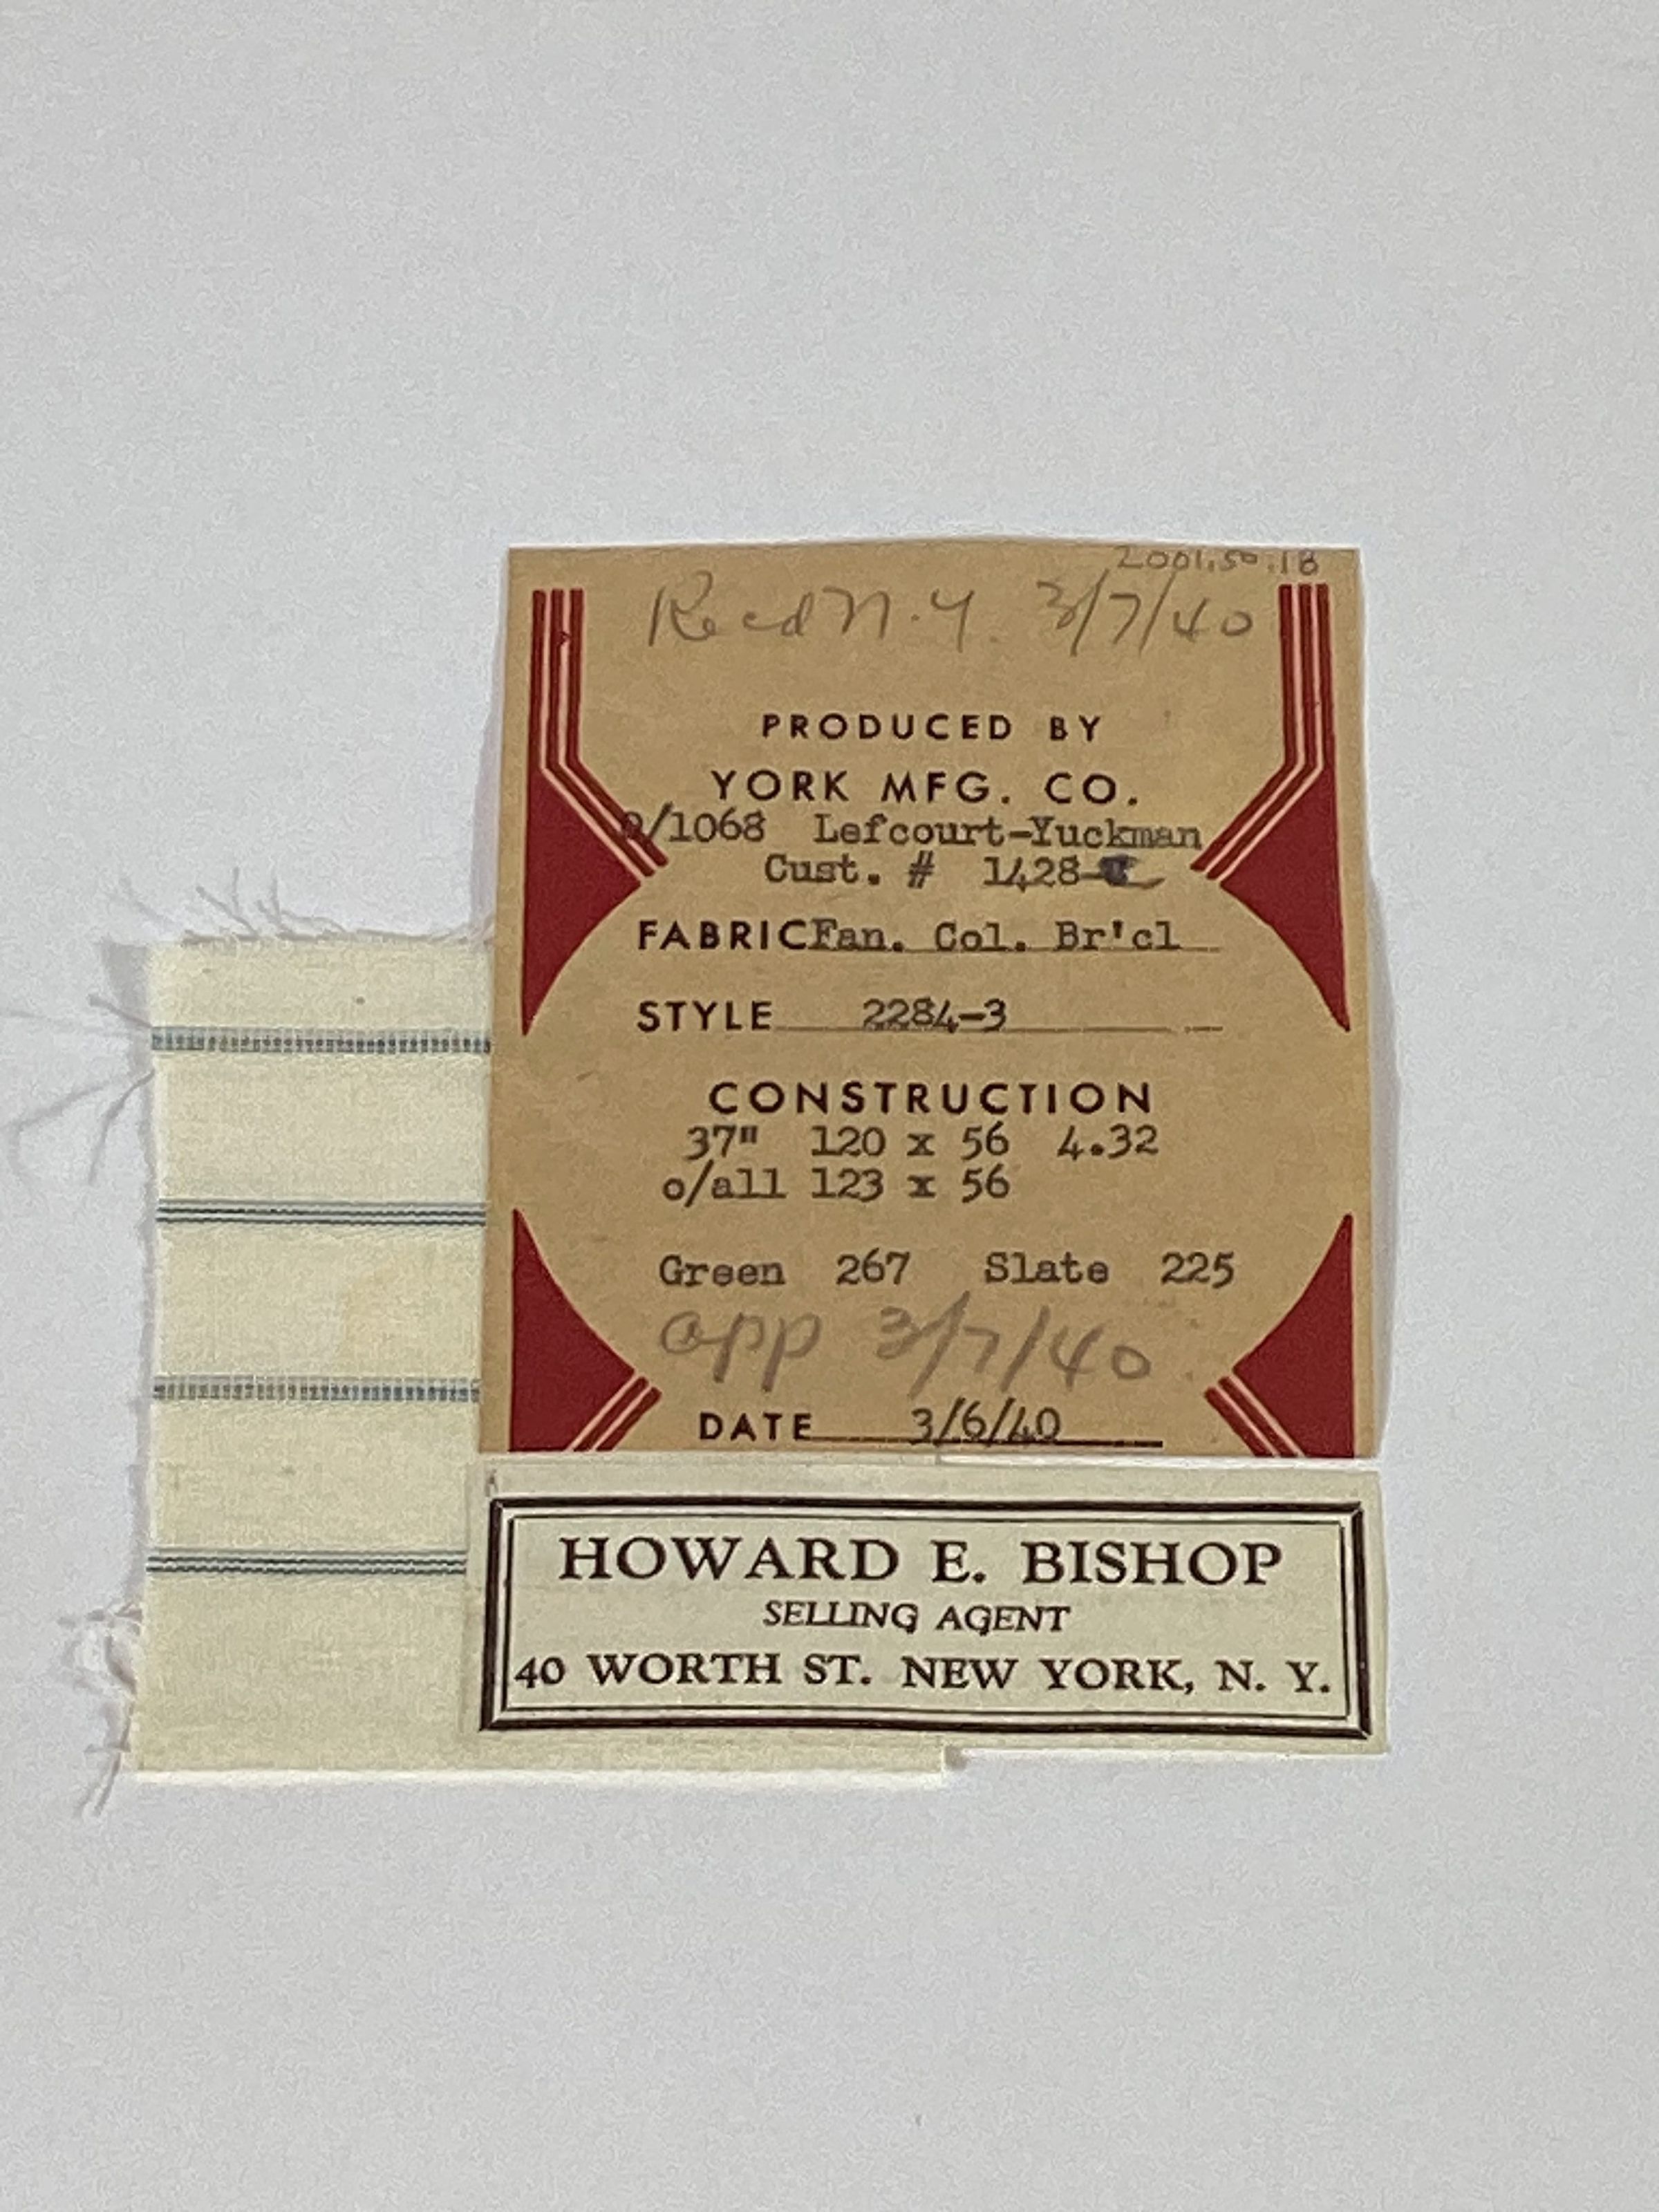 2001.50.18
Recd N.Y. 3/7/40
PRODUCED BY
YORK MFG. CO.
/1068 Lefcourt-Yuckman
Cust. # 1428-
FABRIC Fan. Col. Br'cl
STYLE 2284-3
CONSTRUCTION
37" 120 x 56 4.32
o/all 123 x 56
Green 267 Slate 225
app 3/7/40
DATE 3/6/40
HOWARD E. BISHOP
SELLING AGENT
40 WORTH ST. NEW YORK, N. Y.